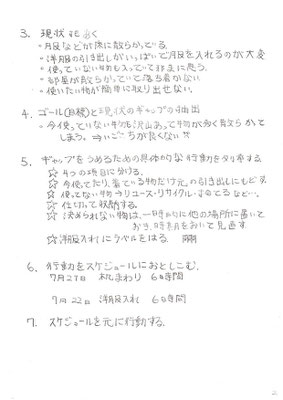 3. 現状を書く
・月服などが床に散らかっている。
・洋服の引き出しがいっぱいで月服を入れるのが大変
・使っていない物も入っていてすぐに思う。
・部屋が散らかっていて落ち着かない
・使いたい物が簡単に取り出せない。
4. ゴール(目標)と現状のギャップの抽出
・今使っていない物も沢山あって物が多く散らかって
しまう。→いごこちが良くない!!
5. ギャップをうめるための具体的な行動をかき出する
☆ 4つの項目に分ける。
☆ 今使ってたり、着ている物だけ元の引き出しにもどす
☆ 使ってない物をリユース・リサイクル・すてるなど…。
☆ 仕切って収納する。
☆ 決められない物は、一時的に他の場所に置いて
おき、時期をおいて見直す
☆ 洋服入れにラベルをはる
6. 行動をスケジュールにおとしこむ。
7月21日 机まわり 6時間
7月22日 洋服入れ 6時間
7. スケジュールを元に行動する。
2